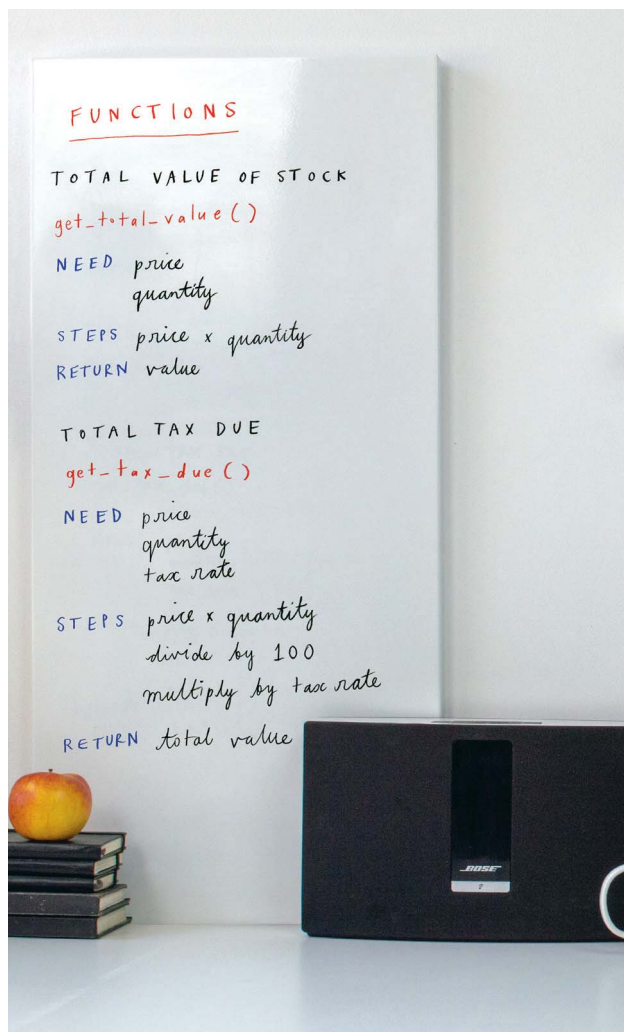 FUNCTIONS
TOTAL VALUE OF STOCK
get_total_value()
NEED price
quantity
STEPS price x quantity
RETURN value
TOTAL TAX DUE
get_tax_due()
NEED price
quantity
tax rate
STEPS price x quantity
divide by 100
multiply by tax rate
RETURN total value
BOSE